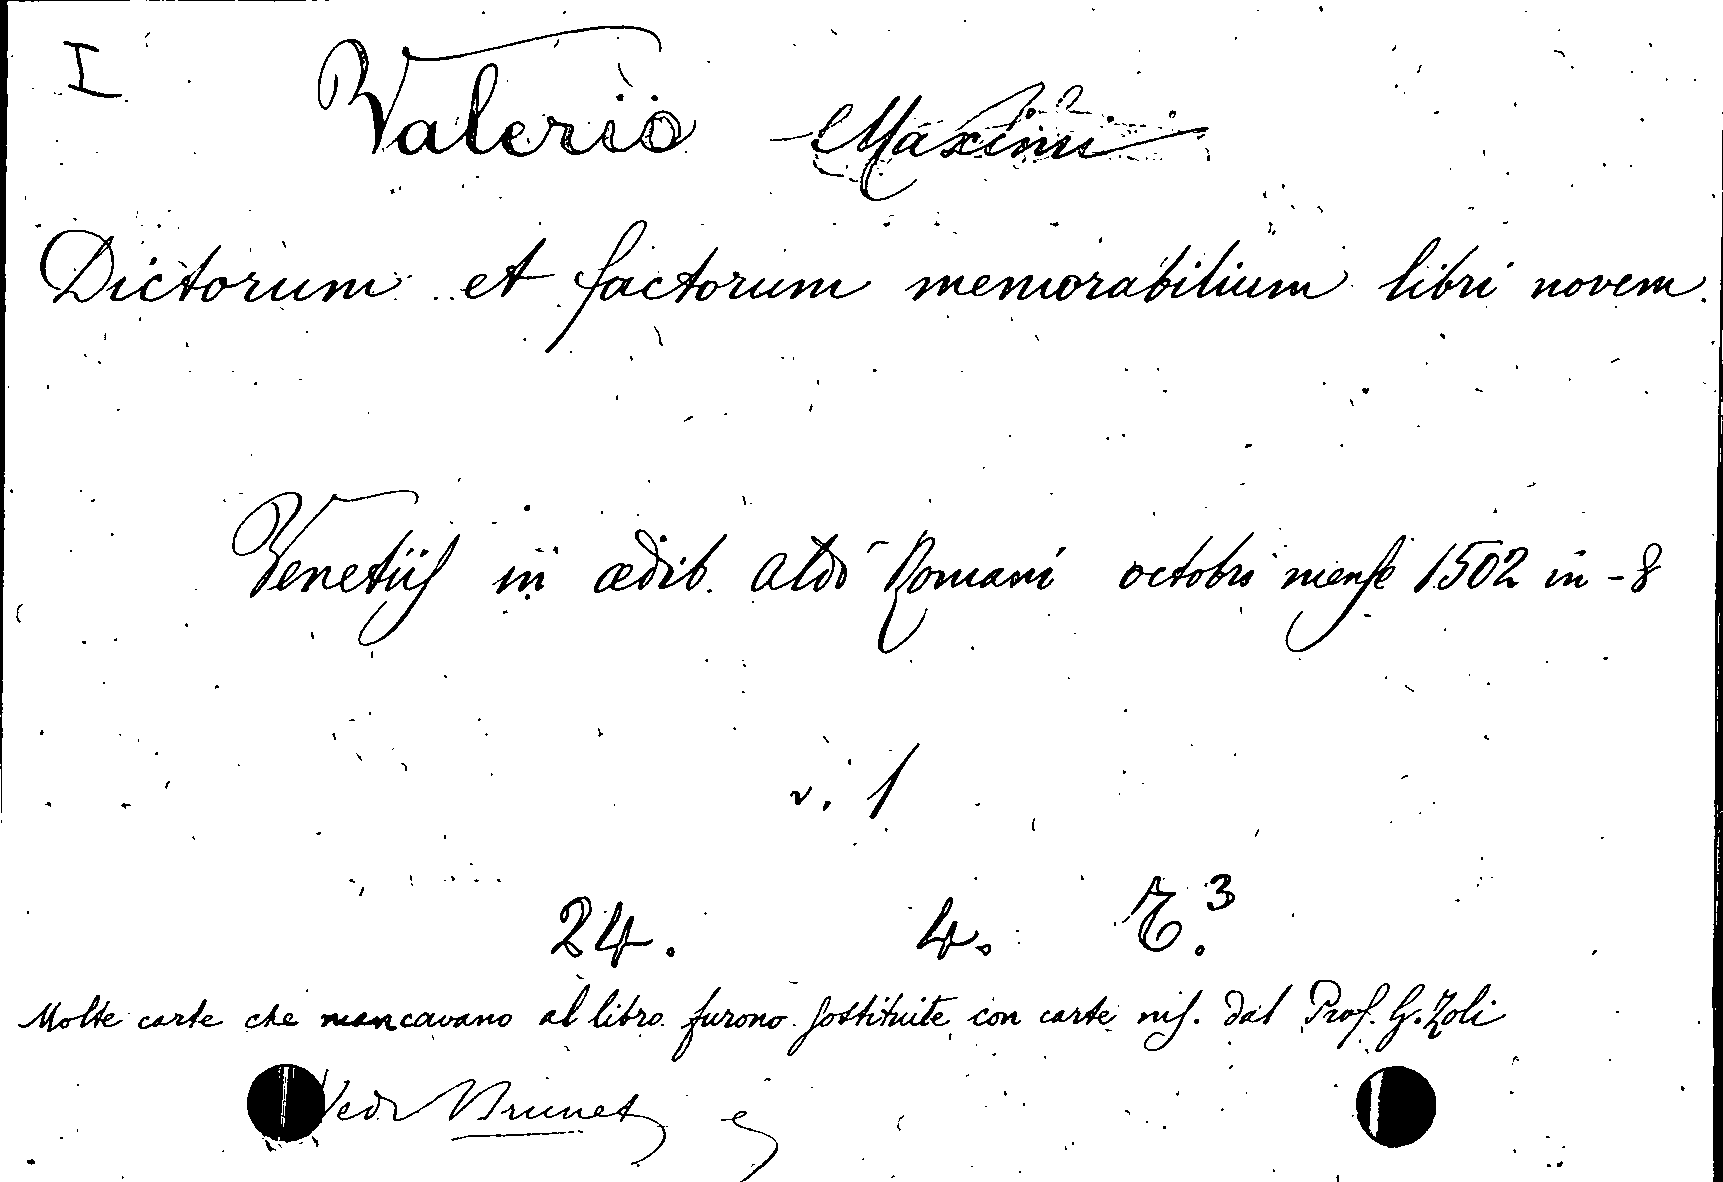 I Valerio Maximi
Dictorum et factorum memorabilium libri novem.
Venetiis in ædib. Aldi Romani octobri mense 1502 in-8
v. 1
24. 4. 3
Molte carte che mancavano al libro furono sostituite con carte ms. dal Prof. G. Zoli
Vedi Brunet